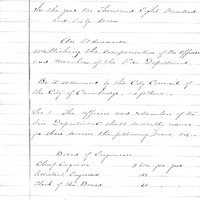 In the year One Thousand Eight Hundred
and Sixty Seven
An Ordinance
establishing the compensation of the Officers
and Members of the Fire Department
Be it ordained by the City Council of
the City of Cambridge, as follows.
Sec 1 The Officers and Members of the
Fire Department shall annually receive
for their services the following
Board of Engineers
Chief Engineer per year
Assistant Engineers
Clerk of the Board